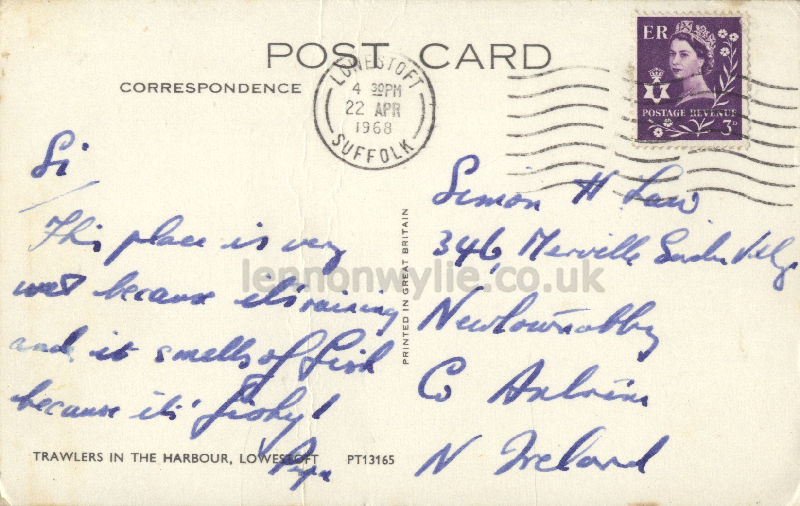 POST CARD
CORRESPONDENCE
LOWESTOFT
4 30PM
22 APR
1968
SUFFOLK
ER
POSTAGE REVENUE
3D
Si
This place is very
wet because it's raining
and it smells of fish
because it's fishy!
Papa
Simon H Law
346, Merville Garden Vlg
Newtownabbey
Co Antrim
N Ireland
PRINTED IN GREAT BRITAIN
lennonwylie.co.uk
TRAWLERS IN THE HARBOUR, LOWESTOFT PT13165